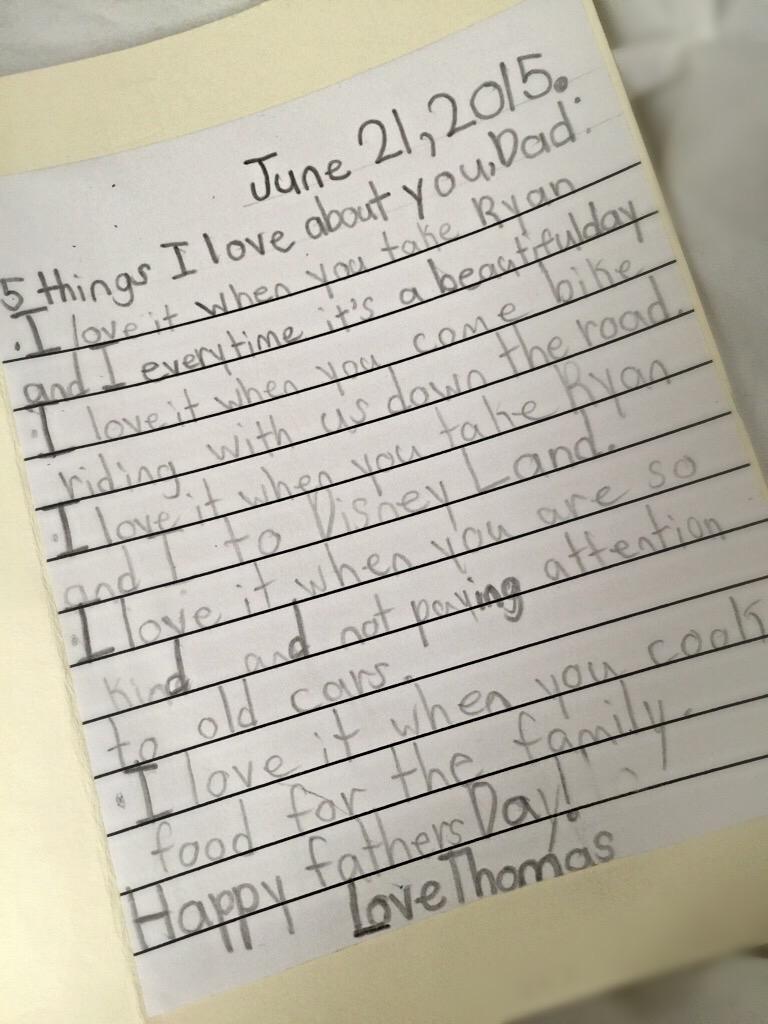 June 21, 2015.
5 things I love about you, Dad:
. I love it when you take Ryan
and I everytime it's a beautifulday
. I love it when you come bike
riding with us down the road.
. I love it when you take Ryan
and I to Disney Land.
. I love it when you are so
kind and not paying attention
to old cars.
. I love it when you cook
food for the family.
Happy fathers Day!
Love Thomas